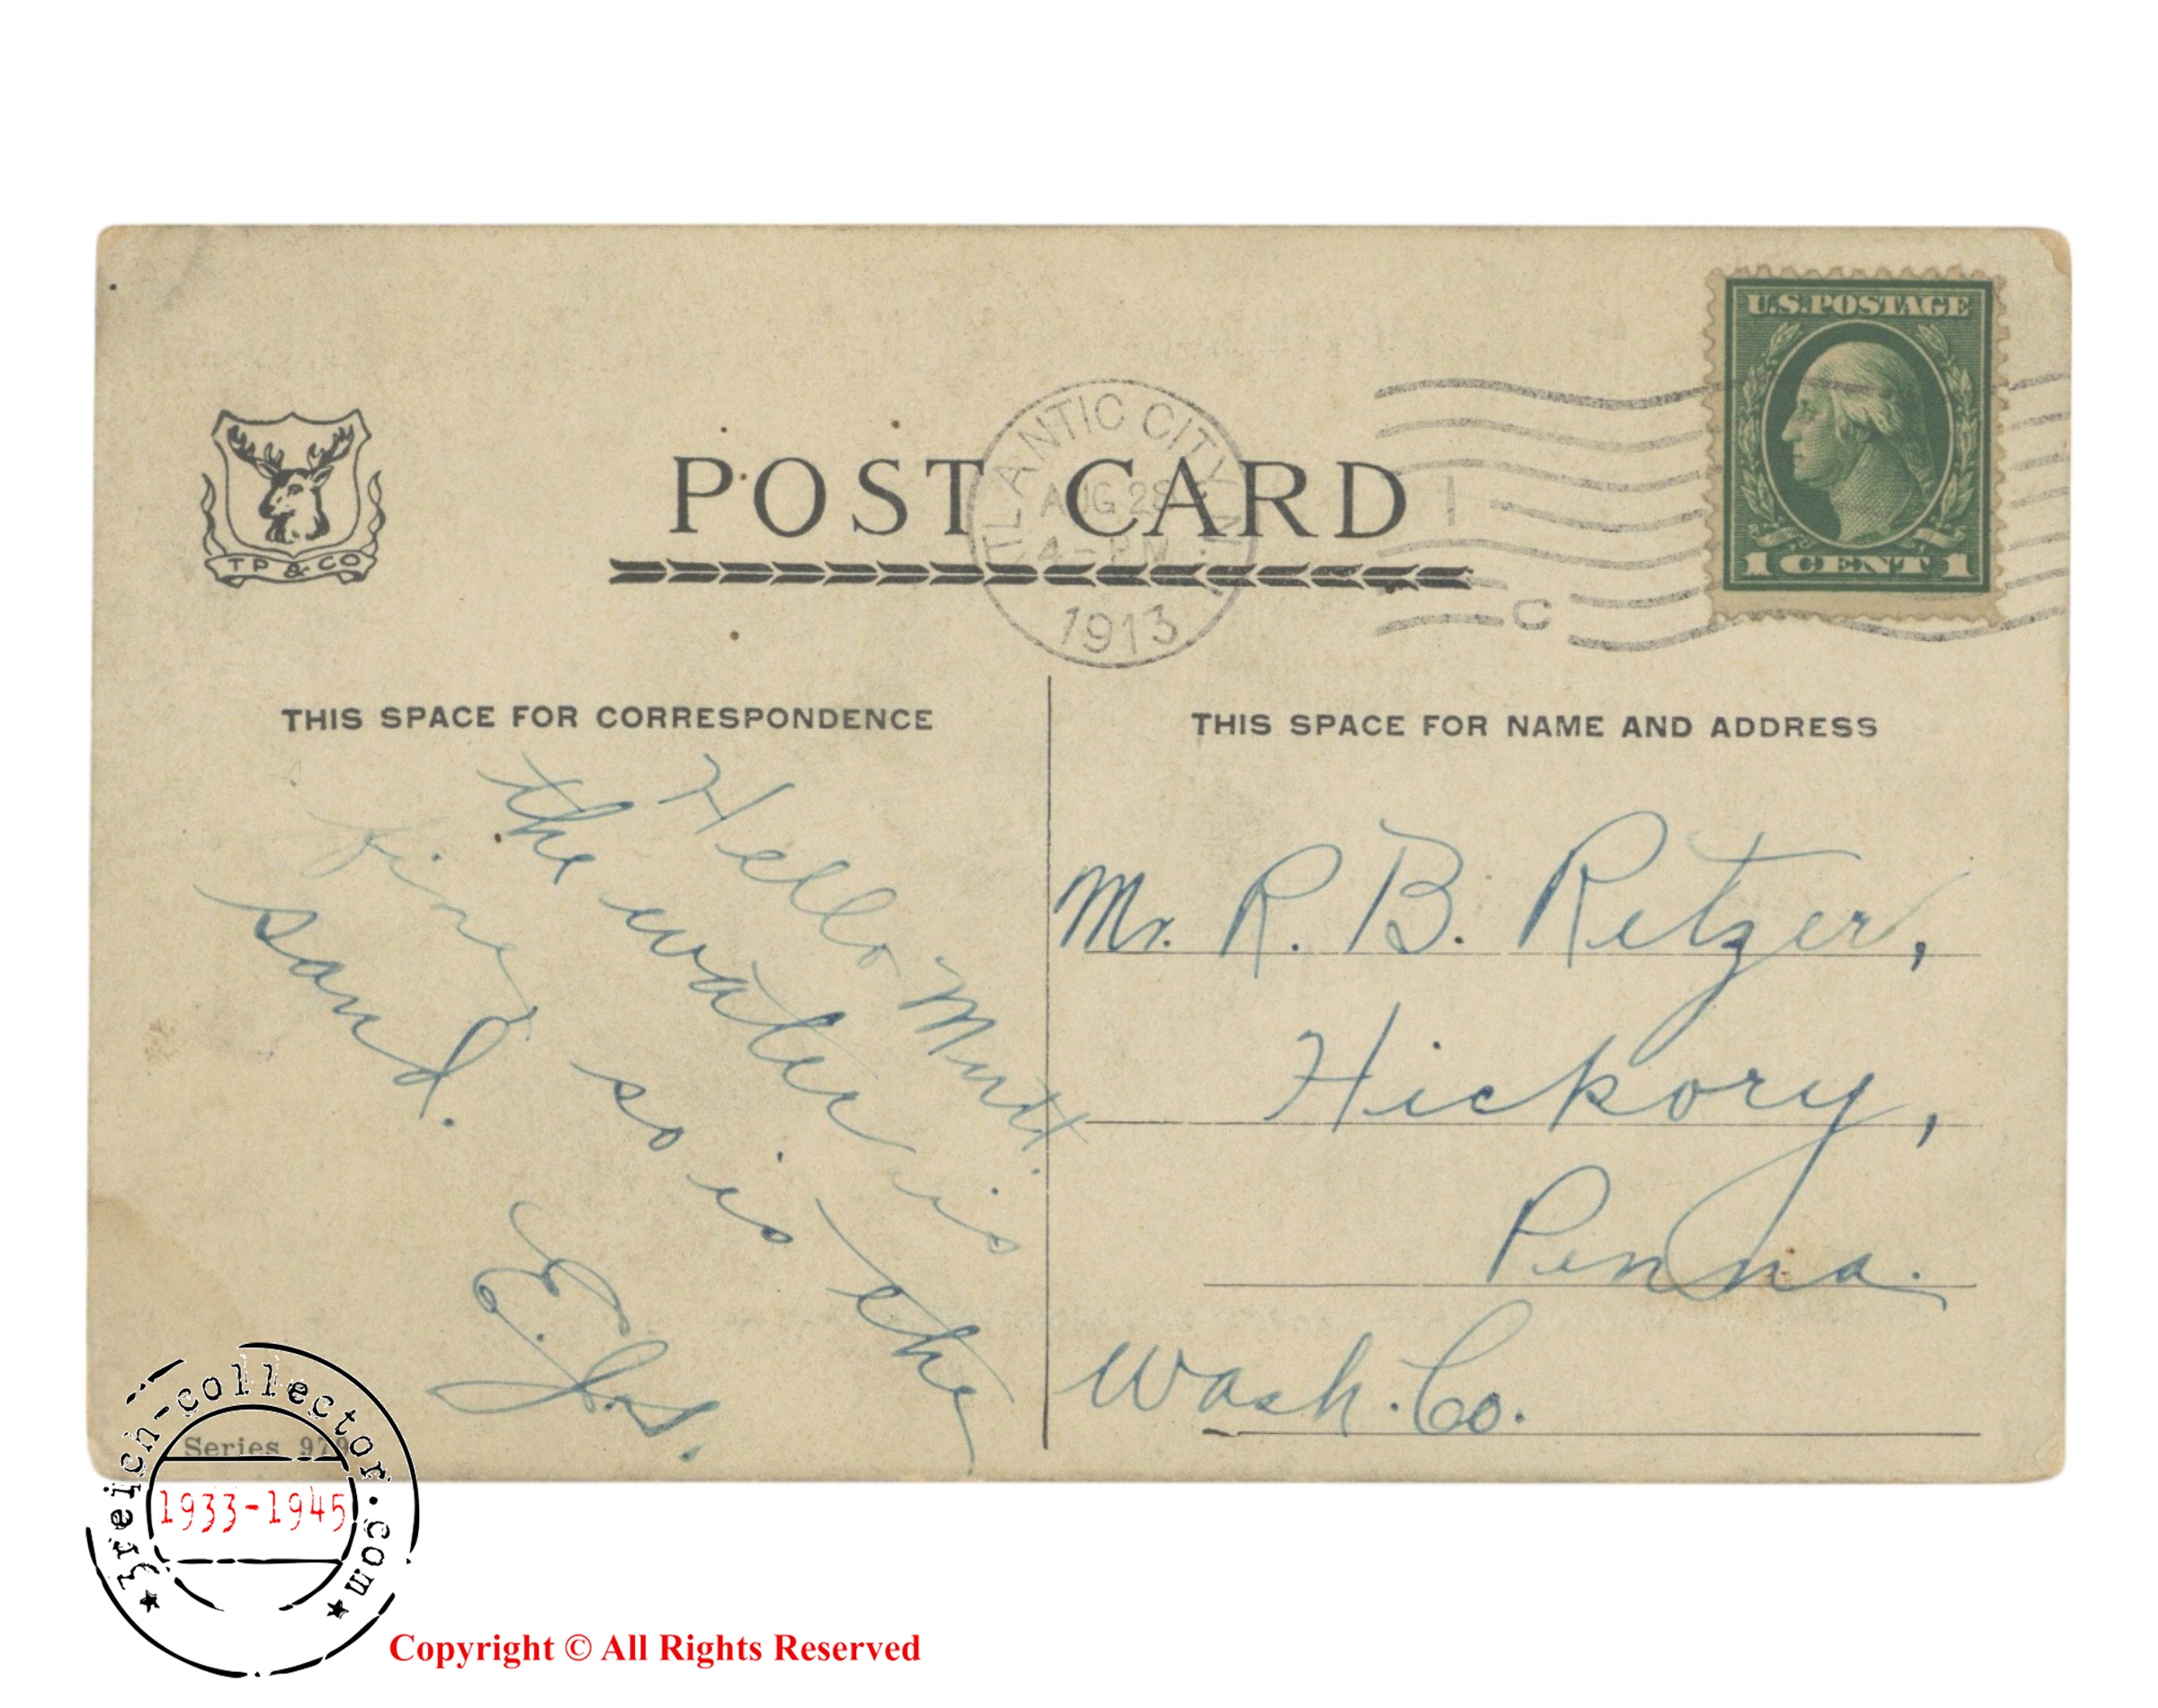 U.S. POSTAGE
1 CENT 1
ATLANTIC CITY N.J.
AUG 28
4-PM
1913
1
C
TP & CO
POST CARD
THIS SPACE FOR CORRESPONDENCE
Hello Mutt.
the water is
fine, so is the
sand.
E.
THIS SPACE FOR NAME AND ADDRESS
Mr. R. B. Retzer,
Hickory,
Penna.
Wash. Co.
Series 979
3reich-collector.com
1933-1945
Copyright © All Rights Reserved